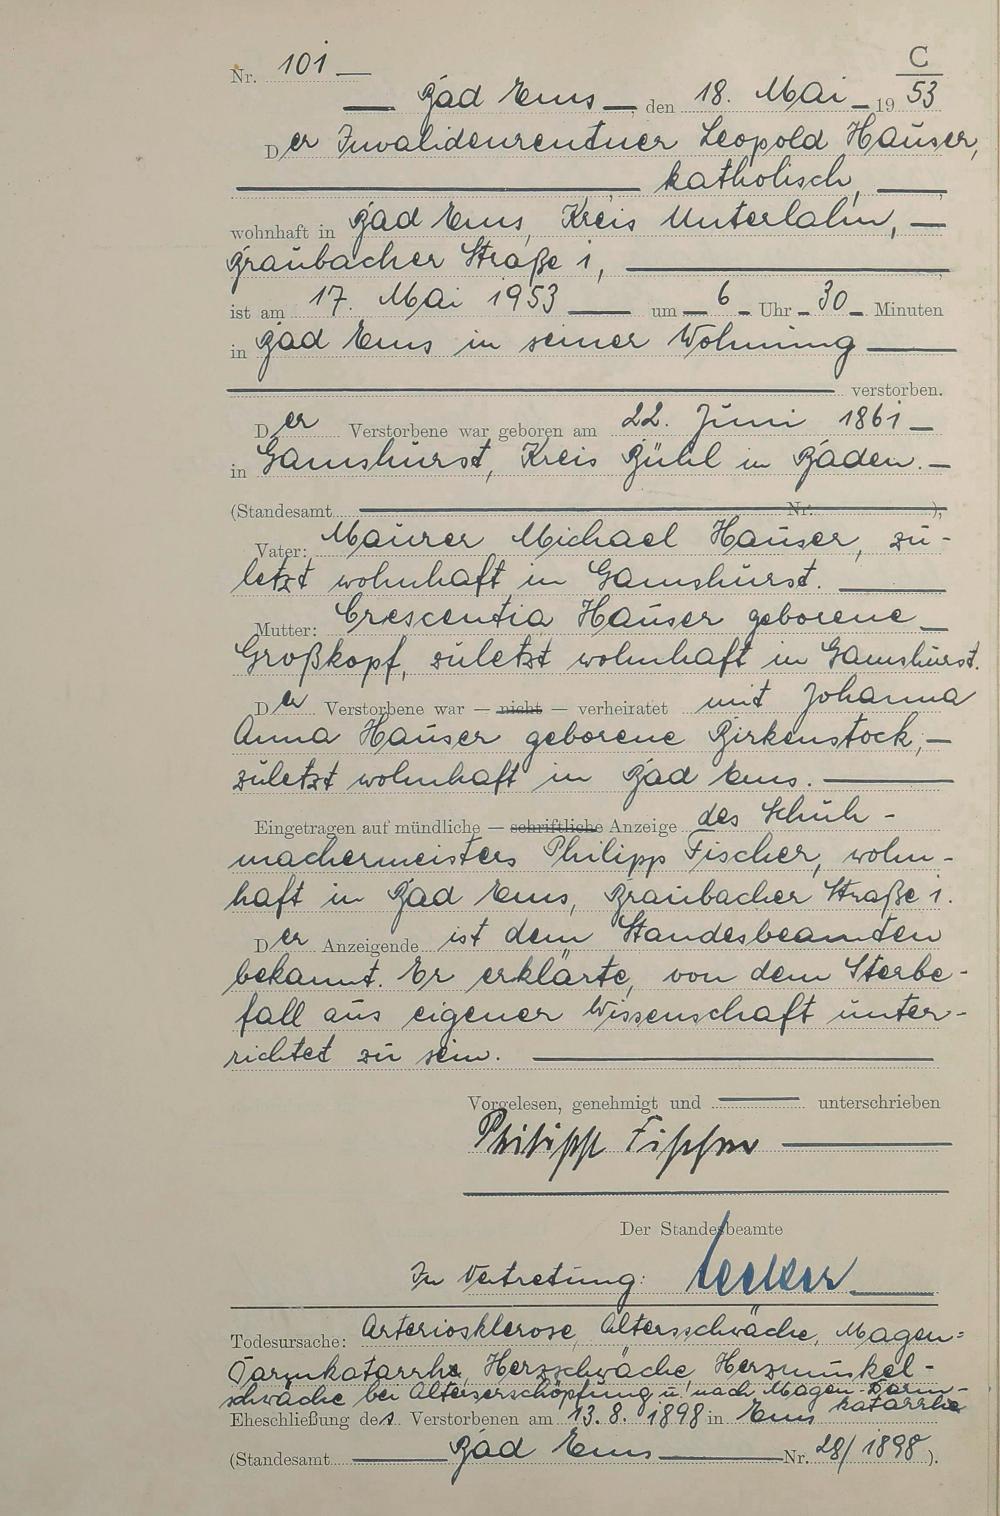 C
Nr. 101
Bad Ems, den 18. Mai 1953
Der Invalidenrentner Leopold Hauser,
katholisch,
wohnhaft in Bad Ems, Kreis Unterlahn,
Braubacher Straße 1,
ist am 17. Mai 1953 um 6 Uhr 30 Minuten
in Bad Ems in seiner Wohnung
verstorben.
Der Verstorbene war geboren am 22. Juni 1861
in Gamshurst, Kreis Bühl in Baden.
(Standesamt Nr. ),
Vater: Maurer Michael Hauser, zu-
letzt wohnhaft in Gamshurst.
Mutter: Crescentia Hauser geborene
Großkopf, zuletzt wohnhaft in Gamshurst.
Der Verstorbene war — nicht — verheiratet mit Johanna
Anna Hauser geborene Birkenstock,
zuletzt wohnhaft in Bad Ems.
Eingetragen auf mündliche — schriftliche Anzeige des Schuh-
machermeisters Philipp Fischer, wohn-
haft in Bad Ems, Braubacher Straße 1.
Der Anzeigende ist dem Standesbeamten
bekannt. Er erklärte, von dem Sterbe-
fall aus eigener Wissenschaft unter-
richtet zu sein.
Vorgelesen, genehmigt und unterschrieben
Philipp Fischer
Der Standesbeamte
In Vertretung:
Todesursache: Arteriosklerose, Altersschwäche, Magen-
Darmkatarrhe, Herzschwäche, Herzmuskel-
schwäche bei Alterserschöpfung u. nach Magen-Darm-
katarrhe
Eheschließung des Verstorbenen am 13.8.1898 in Ems
(Standesamt Bad Ems Nr. 28/1898).